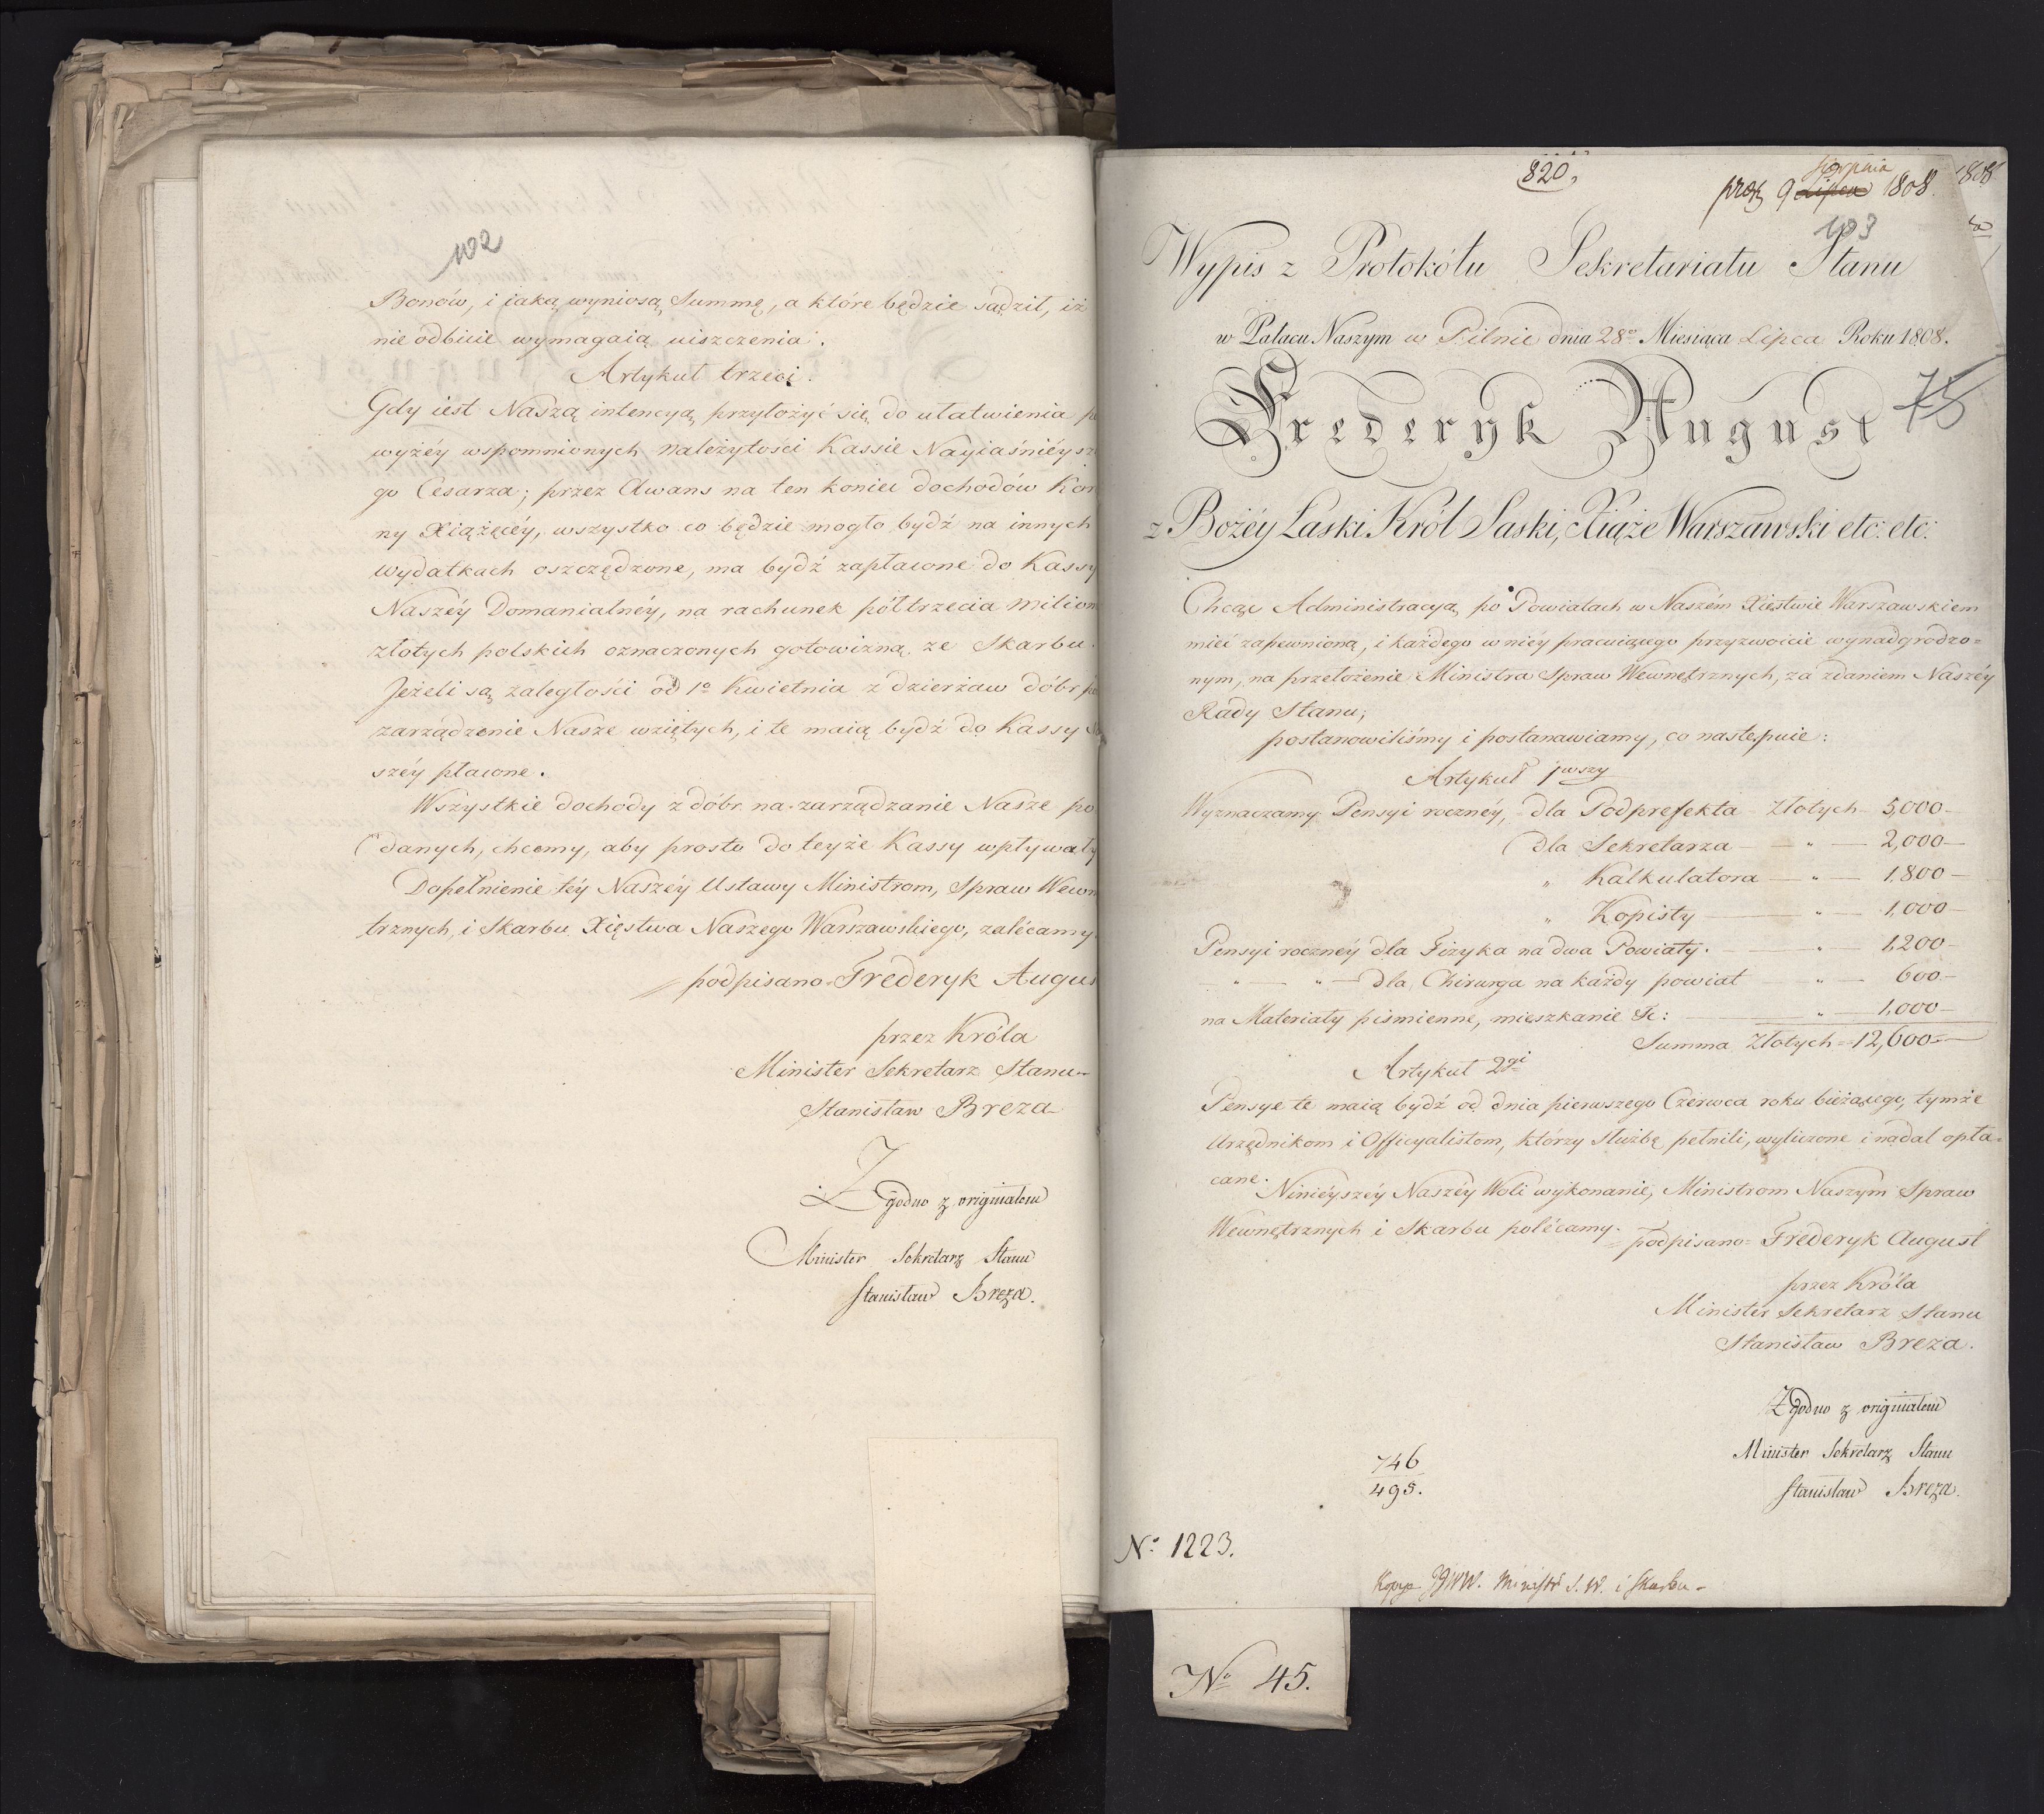 102
Bonów, i iaką wyniosą Summę, a które będzie sądził, iż
nie odbicie wymagaią uiszczenia.
Artykuł trzeci.
Gdy iest Naszą intencyą przyłożyć się do ułatwienia
wyżéy wspomnionych należytości Kassie Nayiaśniéysze
go Cesarza; przez Awans na ten koniec dochodów Kor
ny Xiążęcéy, wszystko co będzie mogło bydź na innych
wydatkach oszczędzone, ma bydź zapłacone do Kassy
Naszéy Domanialnéy, na rachunek półtrzecia milion
złotych polskich oznaczonych gotowizną ze Skarbu.
Jeżeli są zaległości od 1o Kwietnia z dzierżaw dóbr
zarządzenie Nasze wziętych, i te maią bydź do Kassy
széy płacone.
Wszystkie dochody z dóbr na zarządzanie Nasze po
danych, chcemy, aby prosto do teyże Kassy wpływały
Dopełnienie téy Naszéy Ustawy Ministrom, Spraw Wewn
trznych, i Skarbu Xięstwa Naszego Warszawskiego, zalécamy
podpisano Frederyk Augus
przez Króla
Minister Sekretarz Stanu
Stanisław Breza
Zgodno z originałem
Minister Sekretarz Stanu
Stanisław Breza.
820.
Sierpnia 1808
prez 9 Lipca 1808.
103
Wypis z Protokółu Sekretariatu Stanu
w Pałacu Naszym w Pilnie dnia 28o Miesiąca Lipca Roku 1808.
Frederyk August
75
z Bożéy Łaski Król Saski, Xiąże Warszawski etc: etc:
Chcąc Administracyą po Powiatach w Naszém Xięstwie Warszawskiem
mieć zapewnioną, i każdego w niéy pracuiącego przyzwoicie wynadgrodzo=
nym, na przełożenie Ministra Spraw Wewnętrznych, za zdaniem Naszéy
Rady Stanu;
postanowiliśmy i postanawiamy, co następuie:
Artykuł 1wszy
Wyznaczamy Pensyi rocznéy, dla Podprefekta Złotych 5,000
dla Sekretarza — „ — 2,000
„ Kalkulatora — „ — 1,800
„ Kopisty — „ — 1,000
Pensyi rocznéy dla Fizyka na dwa Powiaty. „ — 1,200
„ — „ — dla Chirurga na każdy powiat — „ — 600
na Materiały piśmienne, mieszkanie &c: — „ 1,000
Summa Złotych = 12,600
Artykuł 2gi
Pensye te maią bydź od dnia pierwszego Czerwca roku bieżącego, tymże
Urzędnikom i Officyalistom, którzy służbę pełnili, wyliczone i nadal opła=
cane.
Niniéyszéy Naszéy Woli wykonanie, Ministrom Naszym Spraw
Wewnętrznych i Skarbu polécamy.
podpisano= Frederyk August
przez Króla
Minister Sekretarz Stanu
Stanisław Breza.
Zgodno z originałem
Minister Sekretarz Stanu
Stanisław Breza.
746
495.
No 1223.
Kopya JJWW. Ministr S. W. i Skarbu
No 45.